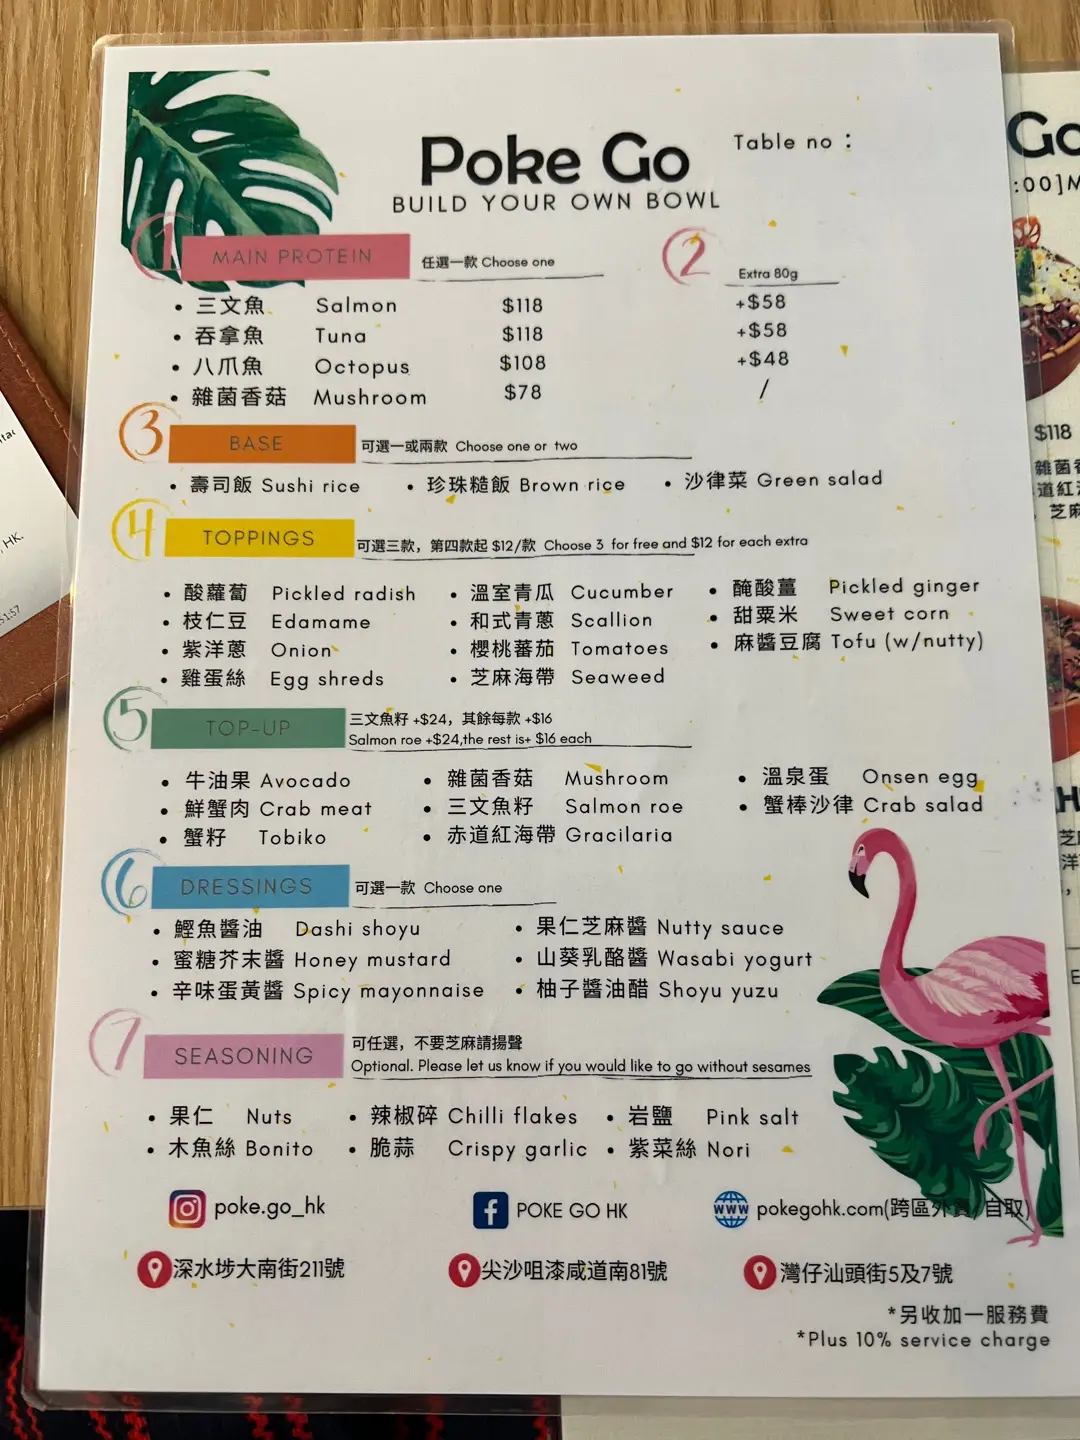 Poke Go
Table no：
BUILD YOUR OWN BOWL
1 MAIN PROTEIN 任選一款 Choose one
2 Extra 80g
• 三文魚 Salmon $118 +$58
• 吞拿魚 Tuna $118 +$58
• 八爪魚 Octopus $108 +$48
• 雜菌香菇 Mushroom $78 /
3 BASE 可選一或兩款 Choose one or two
• 壽司飯 Sushi rice • 珍珠糙飯 Brown rice • 沙律菜 Green salad
4 TOPPINGS 可選三款，第四款起 $12/款 Choose 3 for free and $12 for each extra
• 酸蘿蔔 Pickled radish • 溫室青瓜 Cucumber • 醃酸薑 Pickled ginger
• 枝仁豆 Edamame • 和式青蔥 Scallion • 甜粟米 Sweet corn
• 紫洋蔥 Onion • 櫻桃蕃茄 Tomatoes • 麻醬豆腐 Tofu (w/nutty)
• 雞蛋絲 Egg shreds • 芝麻海帶 Seaweed
5 TOP-UP 三文魚籽 +$24，其餘每款 +$16
Salmon roe +$24,the rest is+ $16 each
• 牛油果 Avocado • 雜菌香菇 Mushroom • 溫泉蛋 Onsen egg
• 鮮蟹肉 Crab meat • 三文魚籽 Salmon roe • 蟹棒沙律 Crab salad
• 蟹籽 Tobiko • 赤道紅海帶 Gracilaria
6 DRESSINGS 可選一款 Choose one
• 鰹魚醬油 Dashi shoyu • 果仁芝麻醬 Nutty sauce
• 蜜糖芥末醬 Honey mustard • 山葵乳酪醬 Wasabi yogurt
• 辛味蛋黃醬 Spicy mayonnaise • 柚子醬油醋 Shoyu yuzu
7 SEASONING 可任選，不要芝麻請揚聲
Optional. Please let us know if you would like to go without sesames
• 果仁 Nuts • 辣椒碎 Chilli flakes • 岩鹽 Pink salt
• 木魚絲 Bonito • 脆蒜 Crispy garlic • 紫菜絲 Nori
poke.go_hk POKE GO HK www pokegohk.com(跨區外賣/自取)
深水埗大南街211號 尖沙咀漆咸道南81號 灣仔汕頭街5及7號
*另收加一服務費
*Plus 10% service charge
Go
:00]
$118
雜菌
道紅
芝麻
HK.
51:57